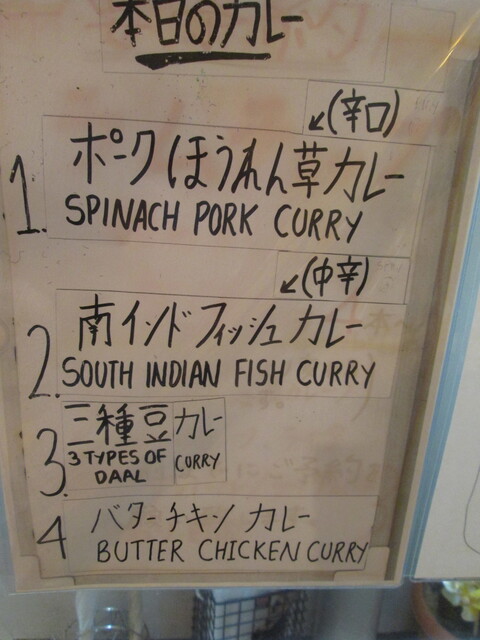 本日のカレー
↙(辛口)
1. ポークほうれん草カレー
SPINACH PORK CURRY
↙(中辛)
2. 南インドフィッシュカレー
SOUTH INDIAN FISH CURRY
3. 三種豆カレー
3 TYPES OF DAAL CURRY
4 バターチキンカレー
BUTTER CHICKEN CURRY